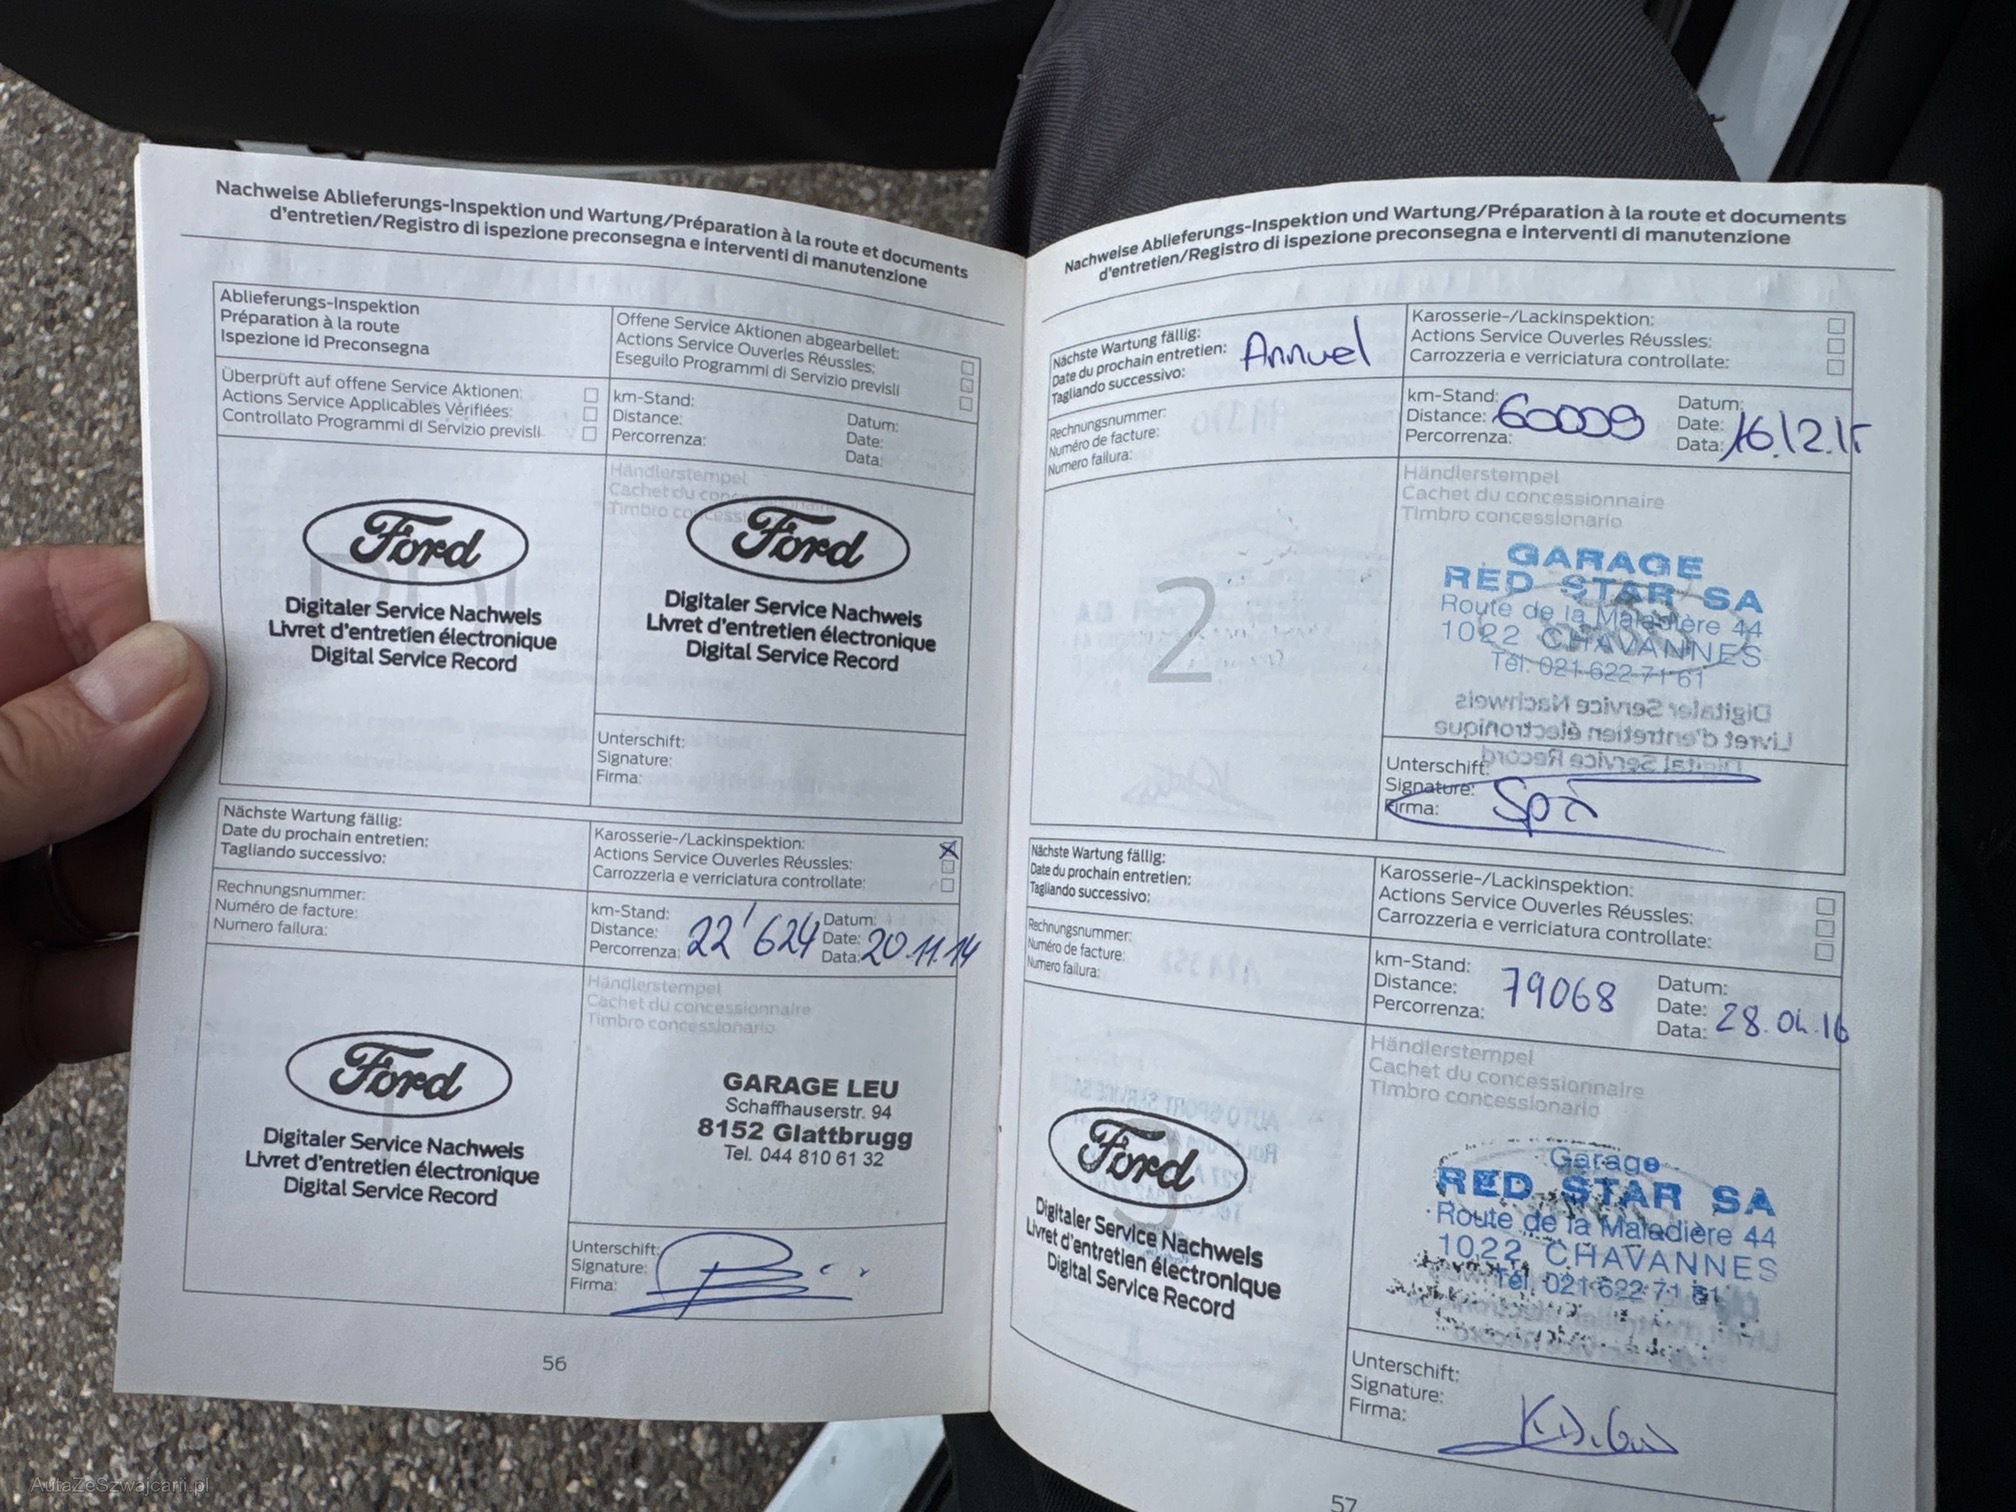 Nachweise Ablieferungs-Inspektion und Wartung/Préparation à la route et documents
d'entretien/Registro di ispezione preconsegna e interventi di manutenzione
Ablieferungs-Inspektion
Préparation à la route
Ispezione id Preconsegna
Offene Service Aktionen abgearbeilet:
Actions Service Ouverles Réussles:
Eseguilo Programmi di Servizio previsli
Überprüft auf offene Service Aktionen:
Actions Service Applicables Vérifiées:
Controllato Programmi di Servizio previsli
km-Stand:
Distance:
Percorrenza:
Datum:
Date:
Data:
Ford
Digitaler Service Nachweis
Livret d'entretien électronique
Digital Service Record
Händlerstempel
Cachet du concessionnaire
Timbro concessionario
Ford
Digitaler Service Nachweis
Livret d'entretien électronique
Digital Service Record
Unterschift:
Signature:
Firma:
Nächste Wartung fällig:
Date du prochain entretien:
Tagliando successivo:
Karosserie-/Lackinspektion:
Actions Service Ouverles Réussles:
Carrozzeria e verriciatura controllate:
Rechnungsnummer:
Numéro de facture:
Numero failura:
km-Stand:
Distance:
Percorrenza:
22'624
Datum:
Date:
Data:
20.11.14
Ford
Digitaler Service Nachweis
Livret d'entretien électronique
Digital Service Record
Händlerstempel
Cachet du concessionnaire
Timbro concessionario
GARAGE LEU
Schaffhauserstr. 94
8152 Glattbrugg
Tel. 044 810 61 32
Unterschift:
Signature:
Firma:
56
Nachweise Ablieferungs-Inspektion und Wartung/Préparation à la route et documents
d'entretien/Registro di ispezione preconsegna e interventi di manutenzione
Nächste Wartung fällig:
Date du prochain entretien:
Tagliando successivo:
Annuel
Karosserie-/Lackinspektion:
Actions Service Ouverles Réussles:
Carrozzeria e verriciatura controllate:
Rechnungsnummer:
Numéro de facture:
Numero failura:
km-Stand:
Distance:
Percorrenza:
60009
Datum:
Date:
Data:
16.12.15
2
Händlerstempel
Cachet du concessionnaire
Timbro concessionario
GARAGE
RED STAR SA
Route de la Maladière 44
1022 CHAVANNES
Tél. 021 622 71 61
Unterschift:
Signature:
Firma:
Nächste Wartung fällig:
Date du prochain entretien:
Tagliando successivo:
Karosserie-/Lackinspektion:
Actions Service Ouverles Réussles:
Carrozzeria e verriciatura controllate:
Rechnungsnummer:
Numéro de facture:
Numero failura:
km-Stand:
Distance:
Percorrenza:
79068
Datum:
Date:
Data:
28.04.16
3
Ford
Digitaler Service Nachweis
Livret d'entretien électronique
Digital Service Record
Händlerstempel
Cachet du concessionnaire
Timbro concessionario
Garage
RED STAR SA
Route de la Maladière 44
1022 CHAVANNES
Tél. 021 622 71 61
Unterschift:
Signature:
Firma:
57
AutaZeSzwajcarii.pl